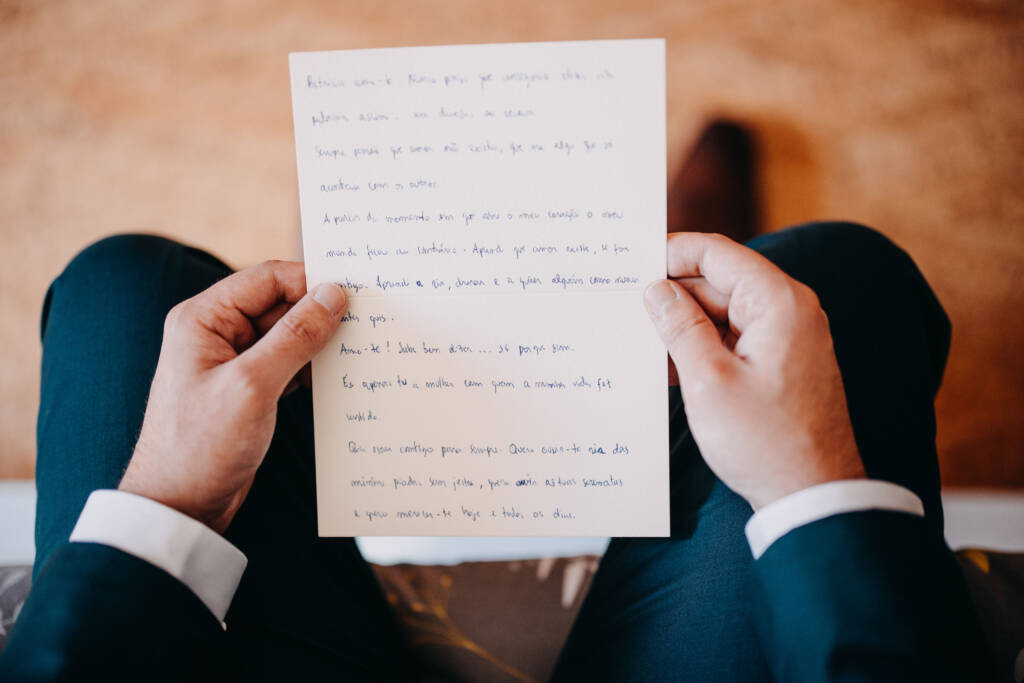 amo-te. Nunca pensei que conseguisse
palavras assim.
Sempre pensei que amor não existia, que era algo que só
acontecia com os outros.
A partir do momento em que abri o meu coração o meu
mundo ficou ao contrário. Aprendi que amor existe, e foi
contigo. Aprendi a rir, e a querer alguém como nunca
antes quis.
Amo-te! Sabe bem dizer ... só porque sim.
És apenas tu a mulher com quem a minha vida faz
sentido.
Quero contigo para sempre. Quero ouvir-te rir das
minhas piadas sem jeito, quero ouvir as tuas serenatas
e quero merecer-te hoje e todos os dias.